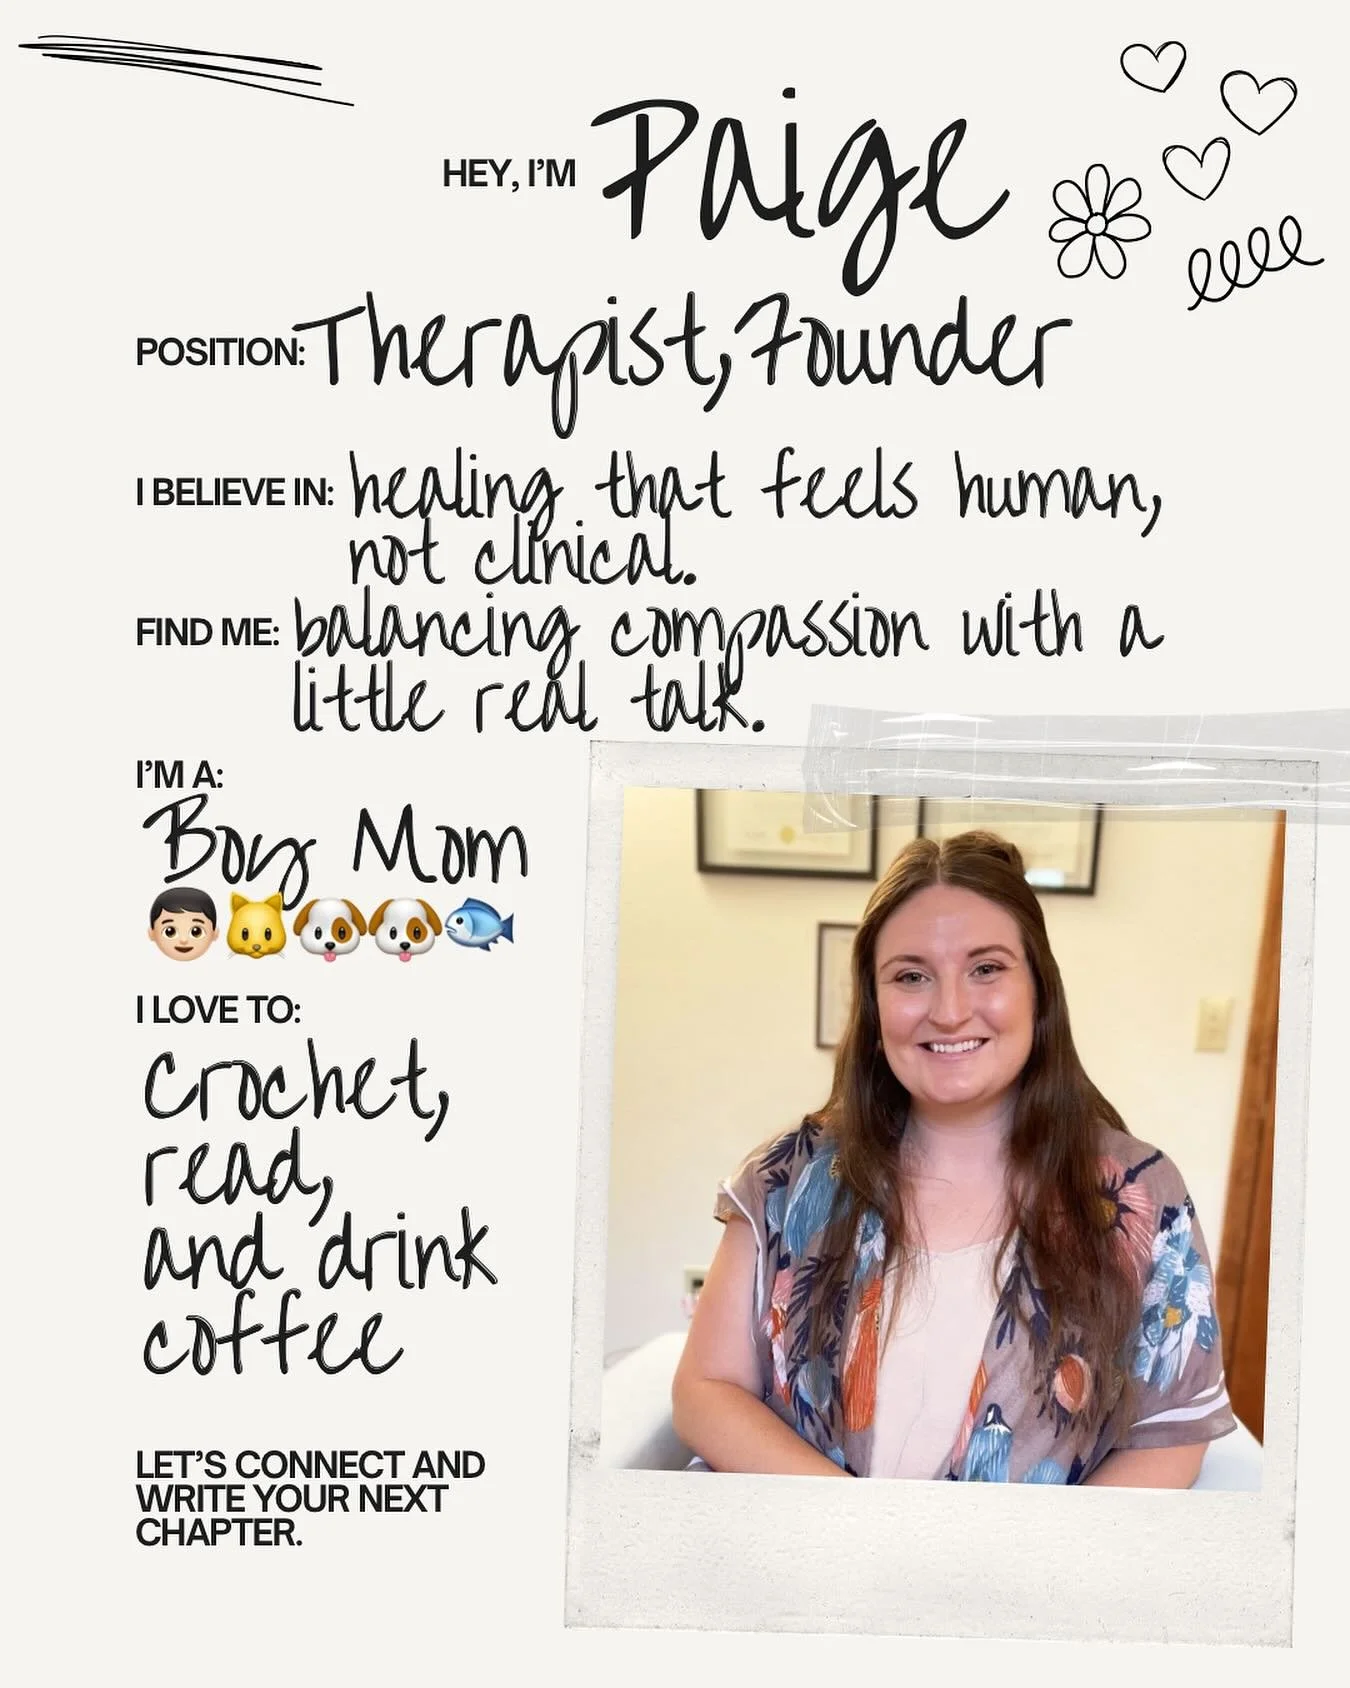 HEY, I'M Paige
POSITION: Therapist, Founder
I BELIEVE IN: healing that feels human,
not clinical.
FIND ME: balancing compassion with a
little real talk.
I'M A:
Boy Mom
I LOVE TO:
Crochet,
read,
and drink
coffee
LET'S CONNECT AND
WRITE YOUR NEXT
CHAPTER.